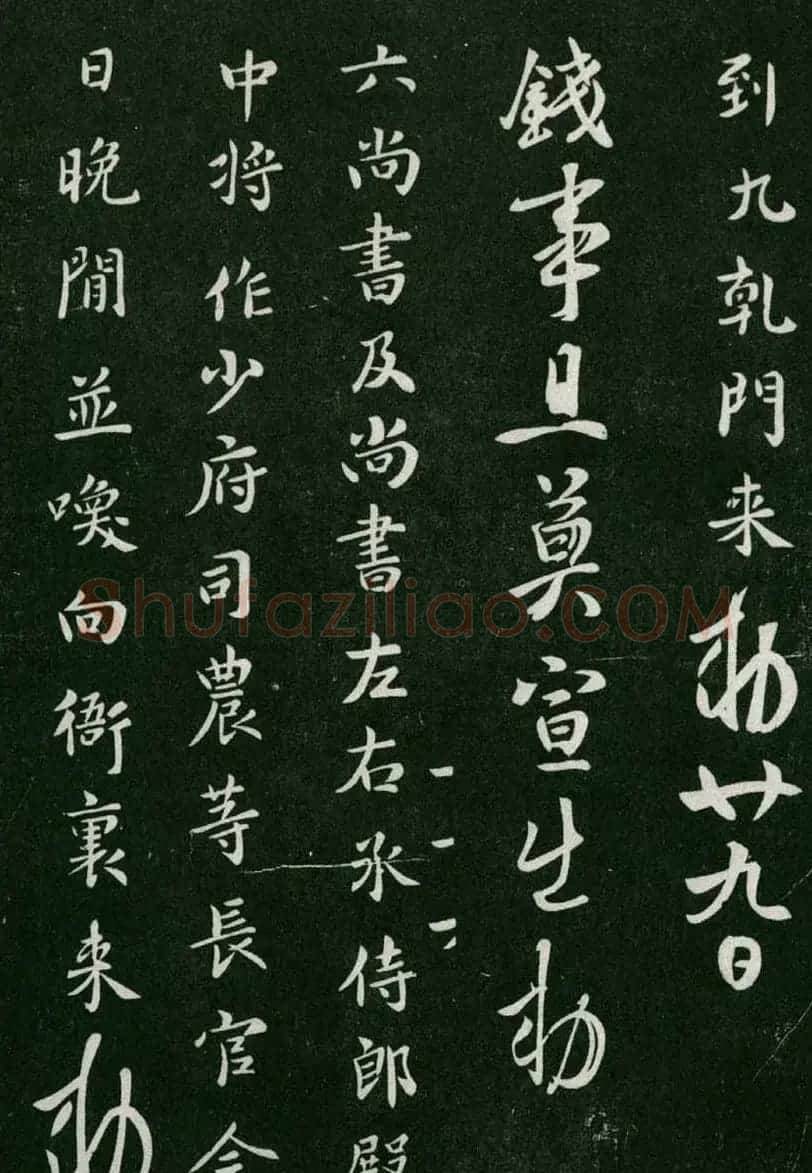 到九乹門来勅廿九日
錢事且莫宣生勅
六尚書及尚書左右丞侍郎殿
中将作少府司農等長官今
日晚間並喚向衙裏来勅
Shufaziliao.COM